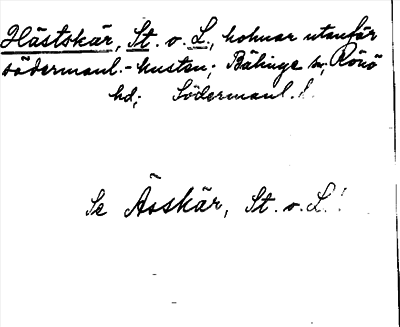 Hästskär, St. o. L., holmar utanför
södermanl.-kusten; Bälinge sn, Rönö
hd; Södermanl. l.
Se Ässkär, St. o. L.!